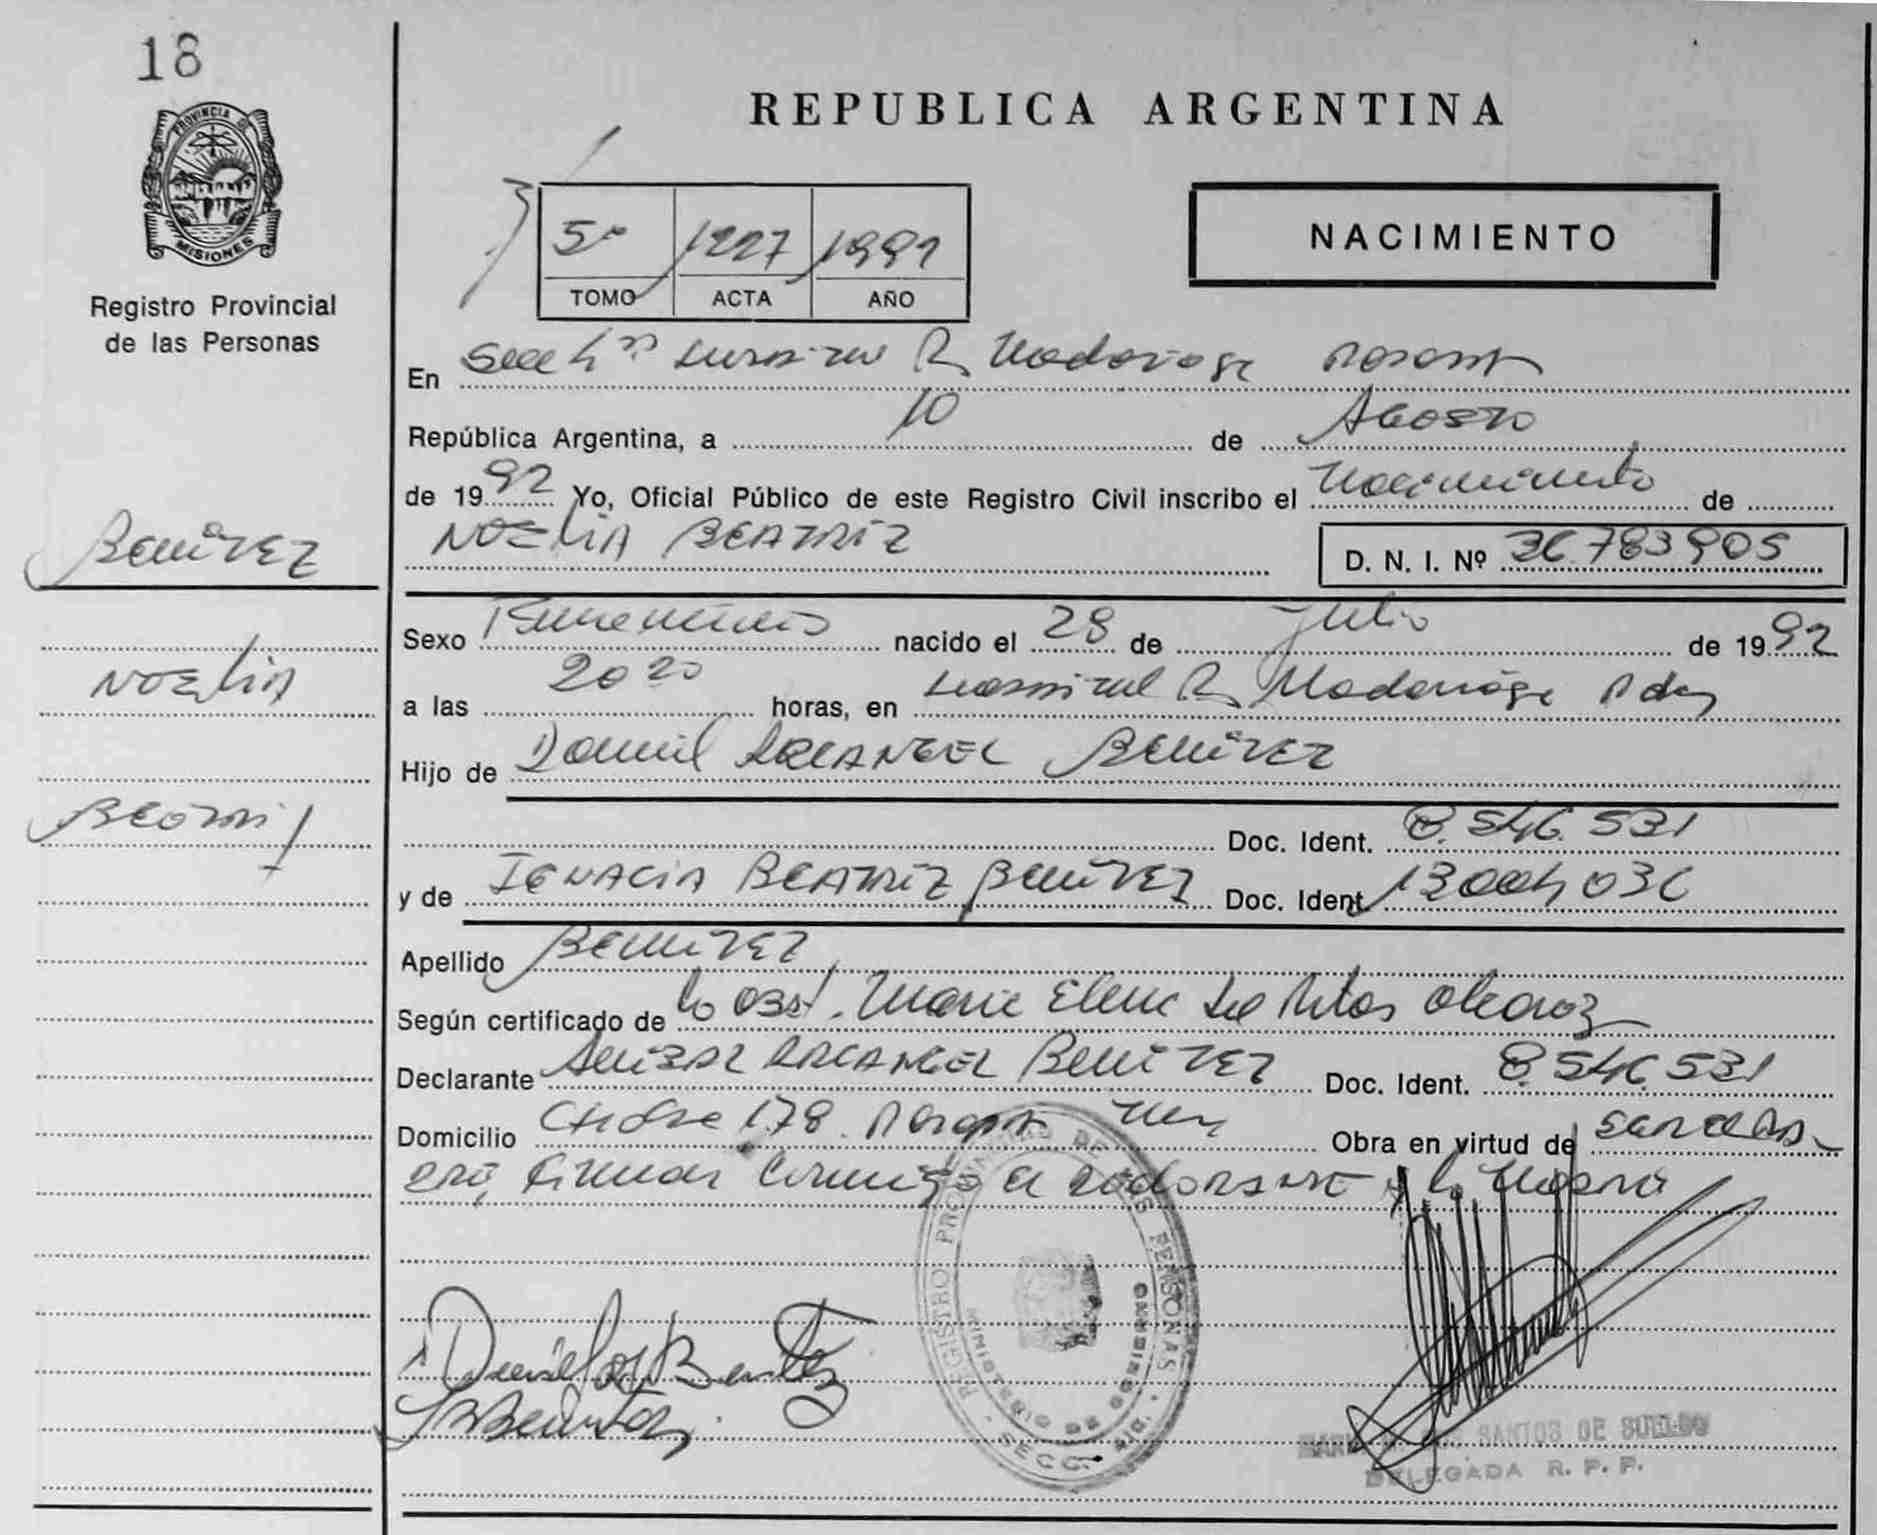 18
PROVINCIA DE
MISIONES
Registro Provincial
de las Personas
REPUBLICA ARGENTINA
NACIMIENTO
5º 1227 1992
TOMO ACTA AÑO
En Secc 4ª Hospital R. Madariaga Posadas
República Argentina, a 10 de Agosto
de 1992 Yo, Oficial Público de este Registro Civil inscribo el Nacimiento de
BENITEZ
NOELIA BEATRIZ
D. N. I. Nº 36.783905
Sexo Femenino nacido el 28 de Julio de 1992
NOELIA
a las 20 20 horas, en Hospital R. Madariaga Pdas
Hijo de Daniel ARCANGEL BENITEZ
BEATRIZ
Doc. Ident. 8.546.531
y de IGNACIA BEATRIZ BENITEZ Doc. Ident. 13004036
Apellido BENITEZ
Según certificado de la Obst. Maria Elena
Declarante ARCANGEL BENITEZ Doc. Ident. 8.546.531
Domicilio 178 Obra en virtud de
firman conmigo el declarante y la
REGISTRO PROVINCIAL DE LAS PERSONAS
MINISTERIO DE GOBIERNO
SECC.
SANTOS DE SUELDO
DELEGADA R. P. P.